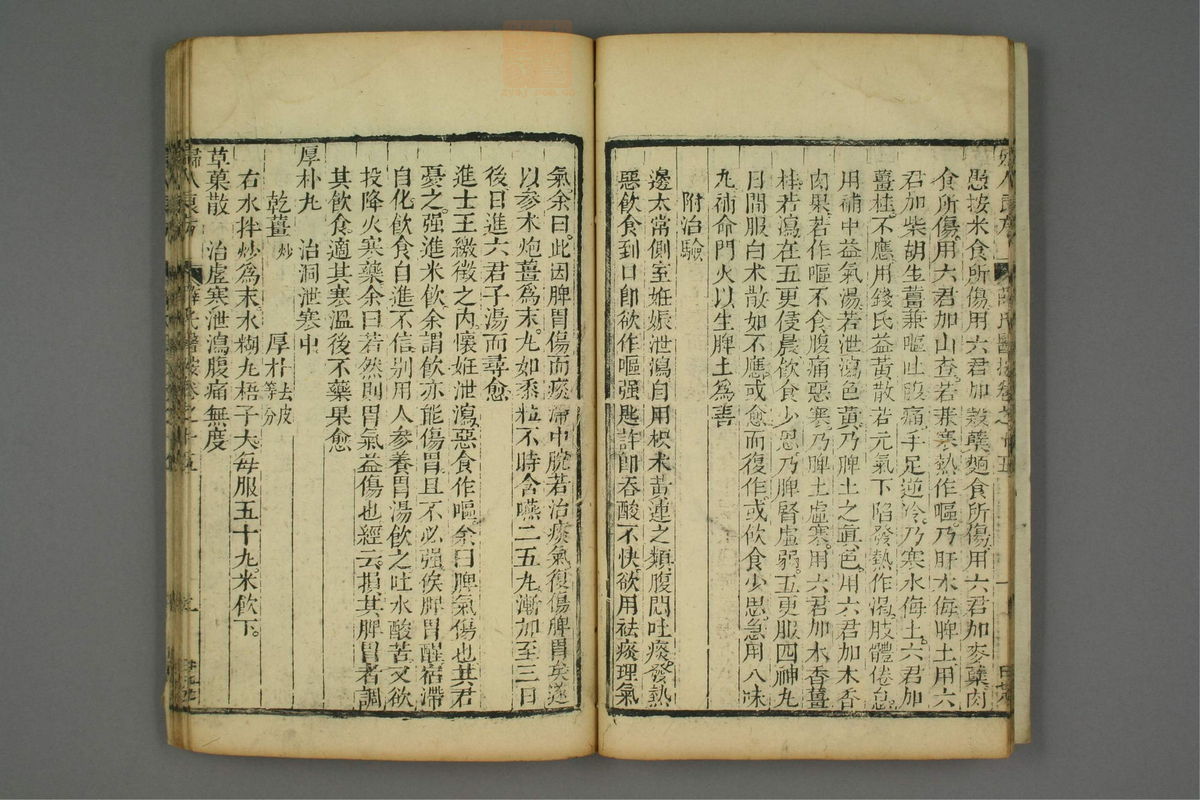 愚按米食所傷用六君加穀蘗麵食所傷用六君加麥蘗肉
食所傷用六君加山查若兼寒熱作嘔乃肝木侮脾土用六
君加柴胡生薑兼嘔吐腹痛手足逆冷乃寒水侮土六君加
薑桂不應用錢氏益黃散若元氣下陷發熱作渴肢體倦怠
用補中益氣湯若泄瀉色黃乃脾土之真色用六君加木香
肉果若作嘔不食腹痛惡寒乃脾土虛寒用六君加木香薑
桂若瀉在五更侵晨飲食少思乃脾腎虛弱五更服四神丸
日間服白朮散如不應或愈而復作或飲食少思急用八味
丸補命門火以生脾土為善
附治驗
邊太常側室妊娠泄瀉自用枳朮黃連之類腹悶吐痰發熱
惡飲食到口即欲作嘔强匙許即吞酸不快欲用祛痰理氣
氣余曰此因脾胃傷而痰滯中脘若治痰氣復傷脾胃矣遂
以參朮炮薑為末丸如黍粒不時含嚥二五丸漸加至三日
後日進六君子湯而尋愈
進士王繳徵之內懷妊泄瀉惡食作嘔余曰脾氣傷也其君
憂之强進米飲余謂飲亦能傷胃且不必强俟脾胃醒宿滯
自化飲食自進不信別用人參養胃湯飲之吐水酸苦又欲
投降火寒藥余曰若然則胃氣益傷也經云損其脾胃者調
其飲食適其寒溫後不藥果愈
厚朴丸 治洞泄寒中
乾薑炒 厚朴去皮等分
右水拌炒為末水糊丸梧子大每服五十丸米飲下
草菓散 治虛寒泄瀉腹痛無度